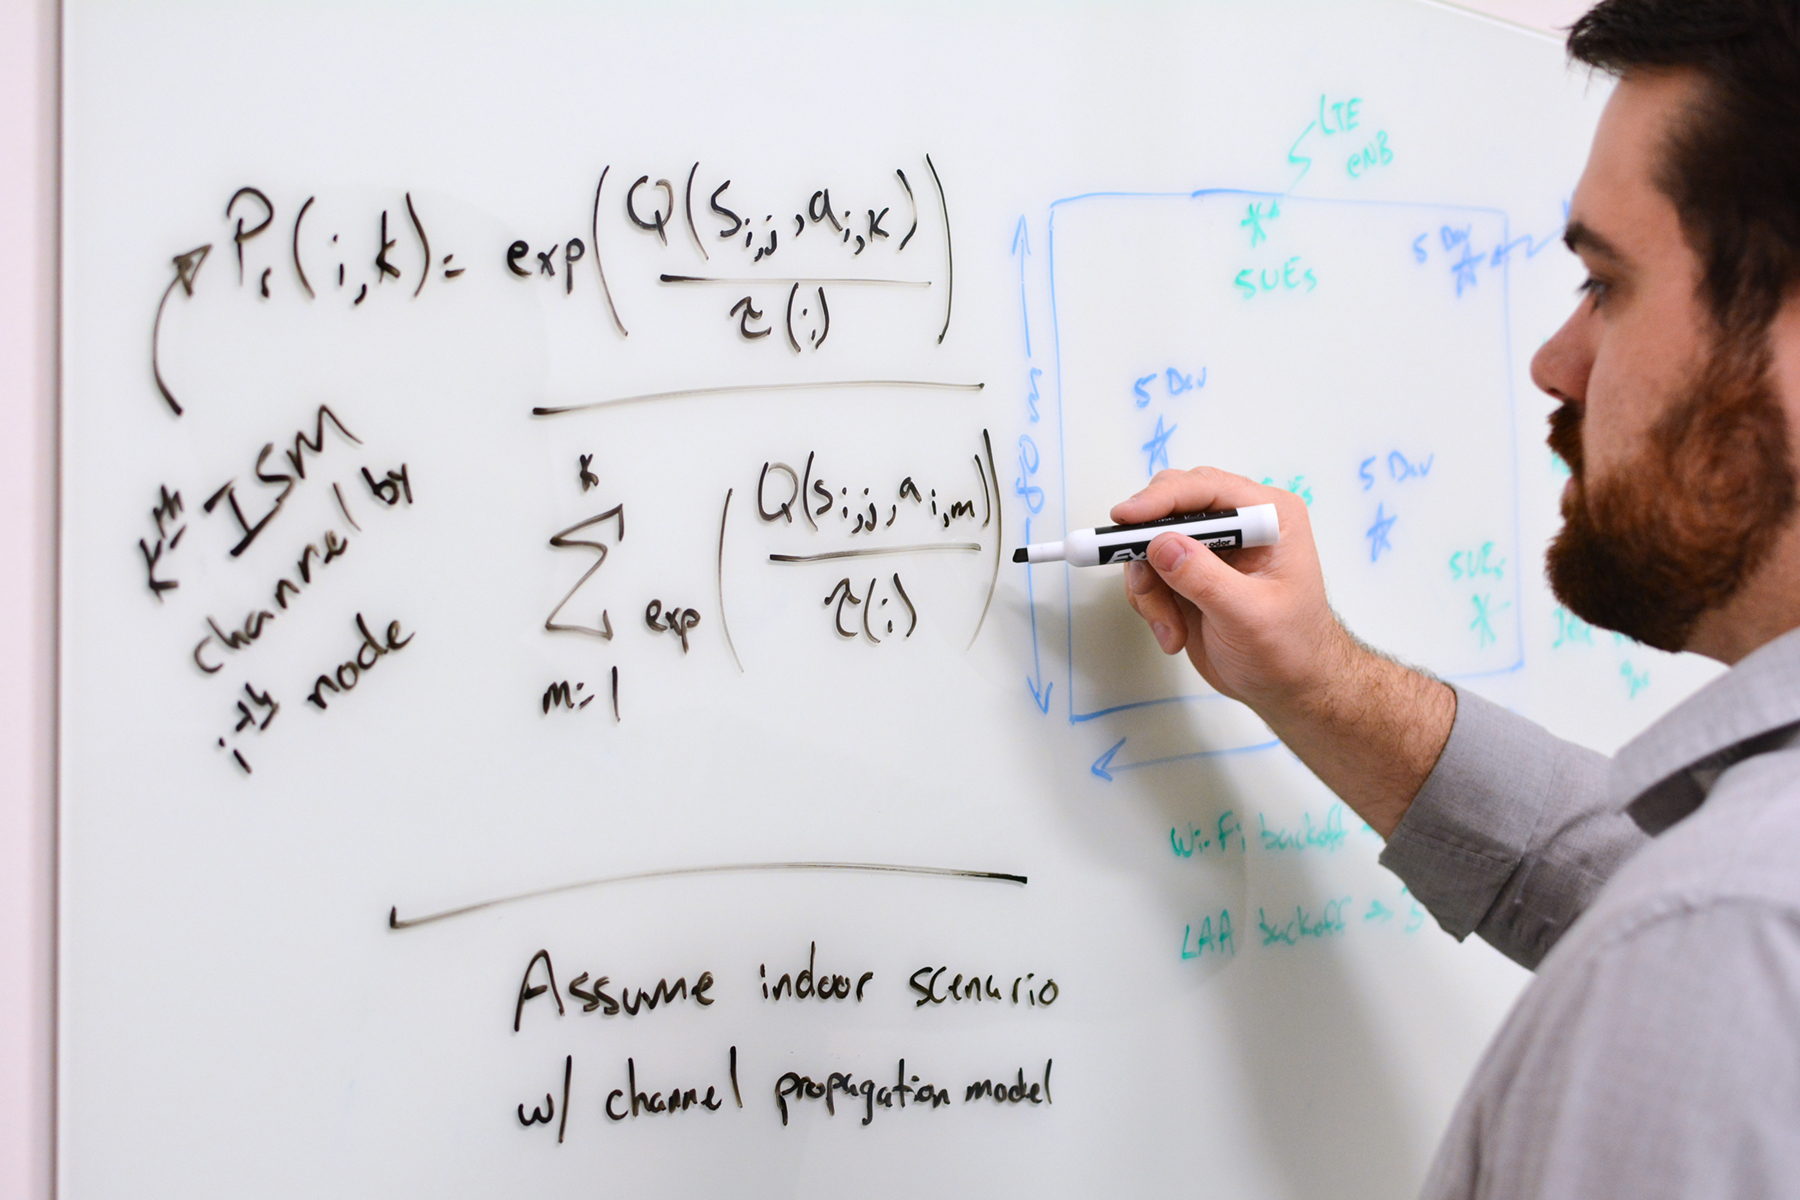 Pr(i,k) = exp(Q(si,j, ai,k)
τ(i))
K
∑ exp(Q(si,j, ai,m)
τ(i))
m=1
kth ISM
channel by
ith node
Assume indoor scenario
w/ channel propagation model
LTE
eNB
5UEs
5 Dev
5 Dev
5 Dev
80m
5UEs
Wi-Fi backoff
LAA backoff →